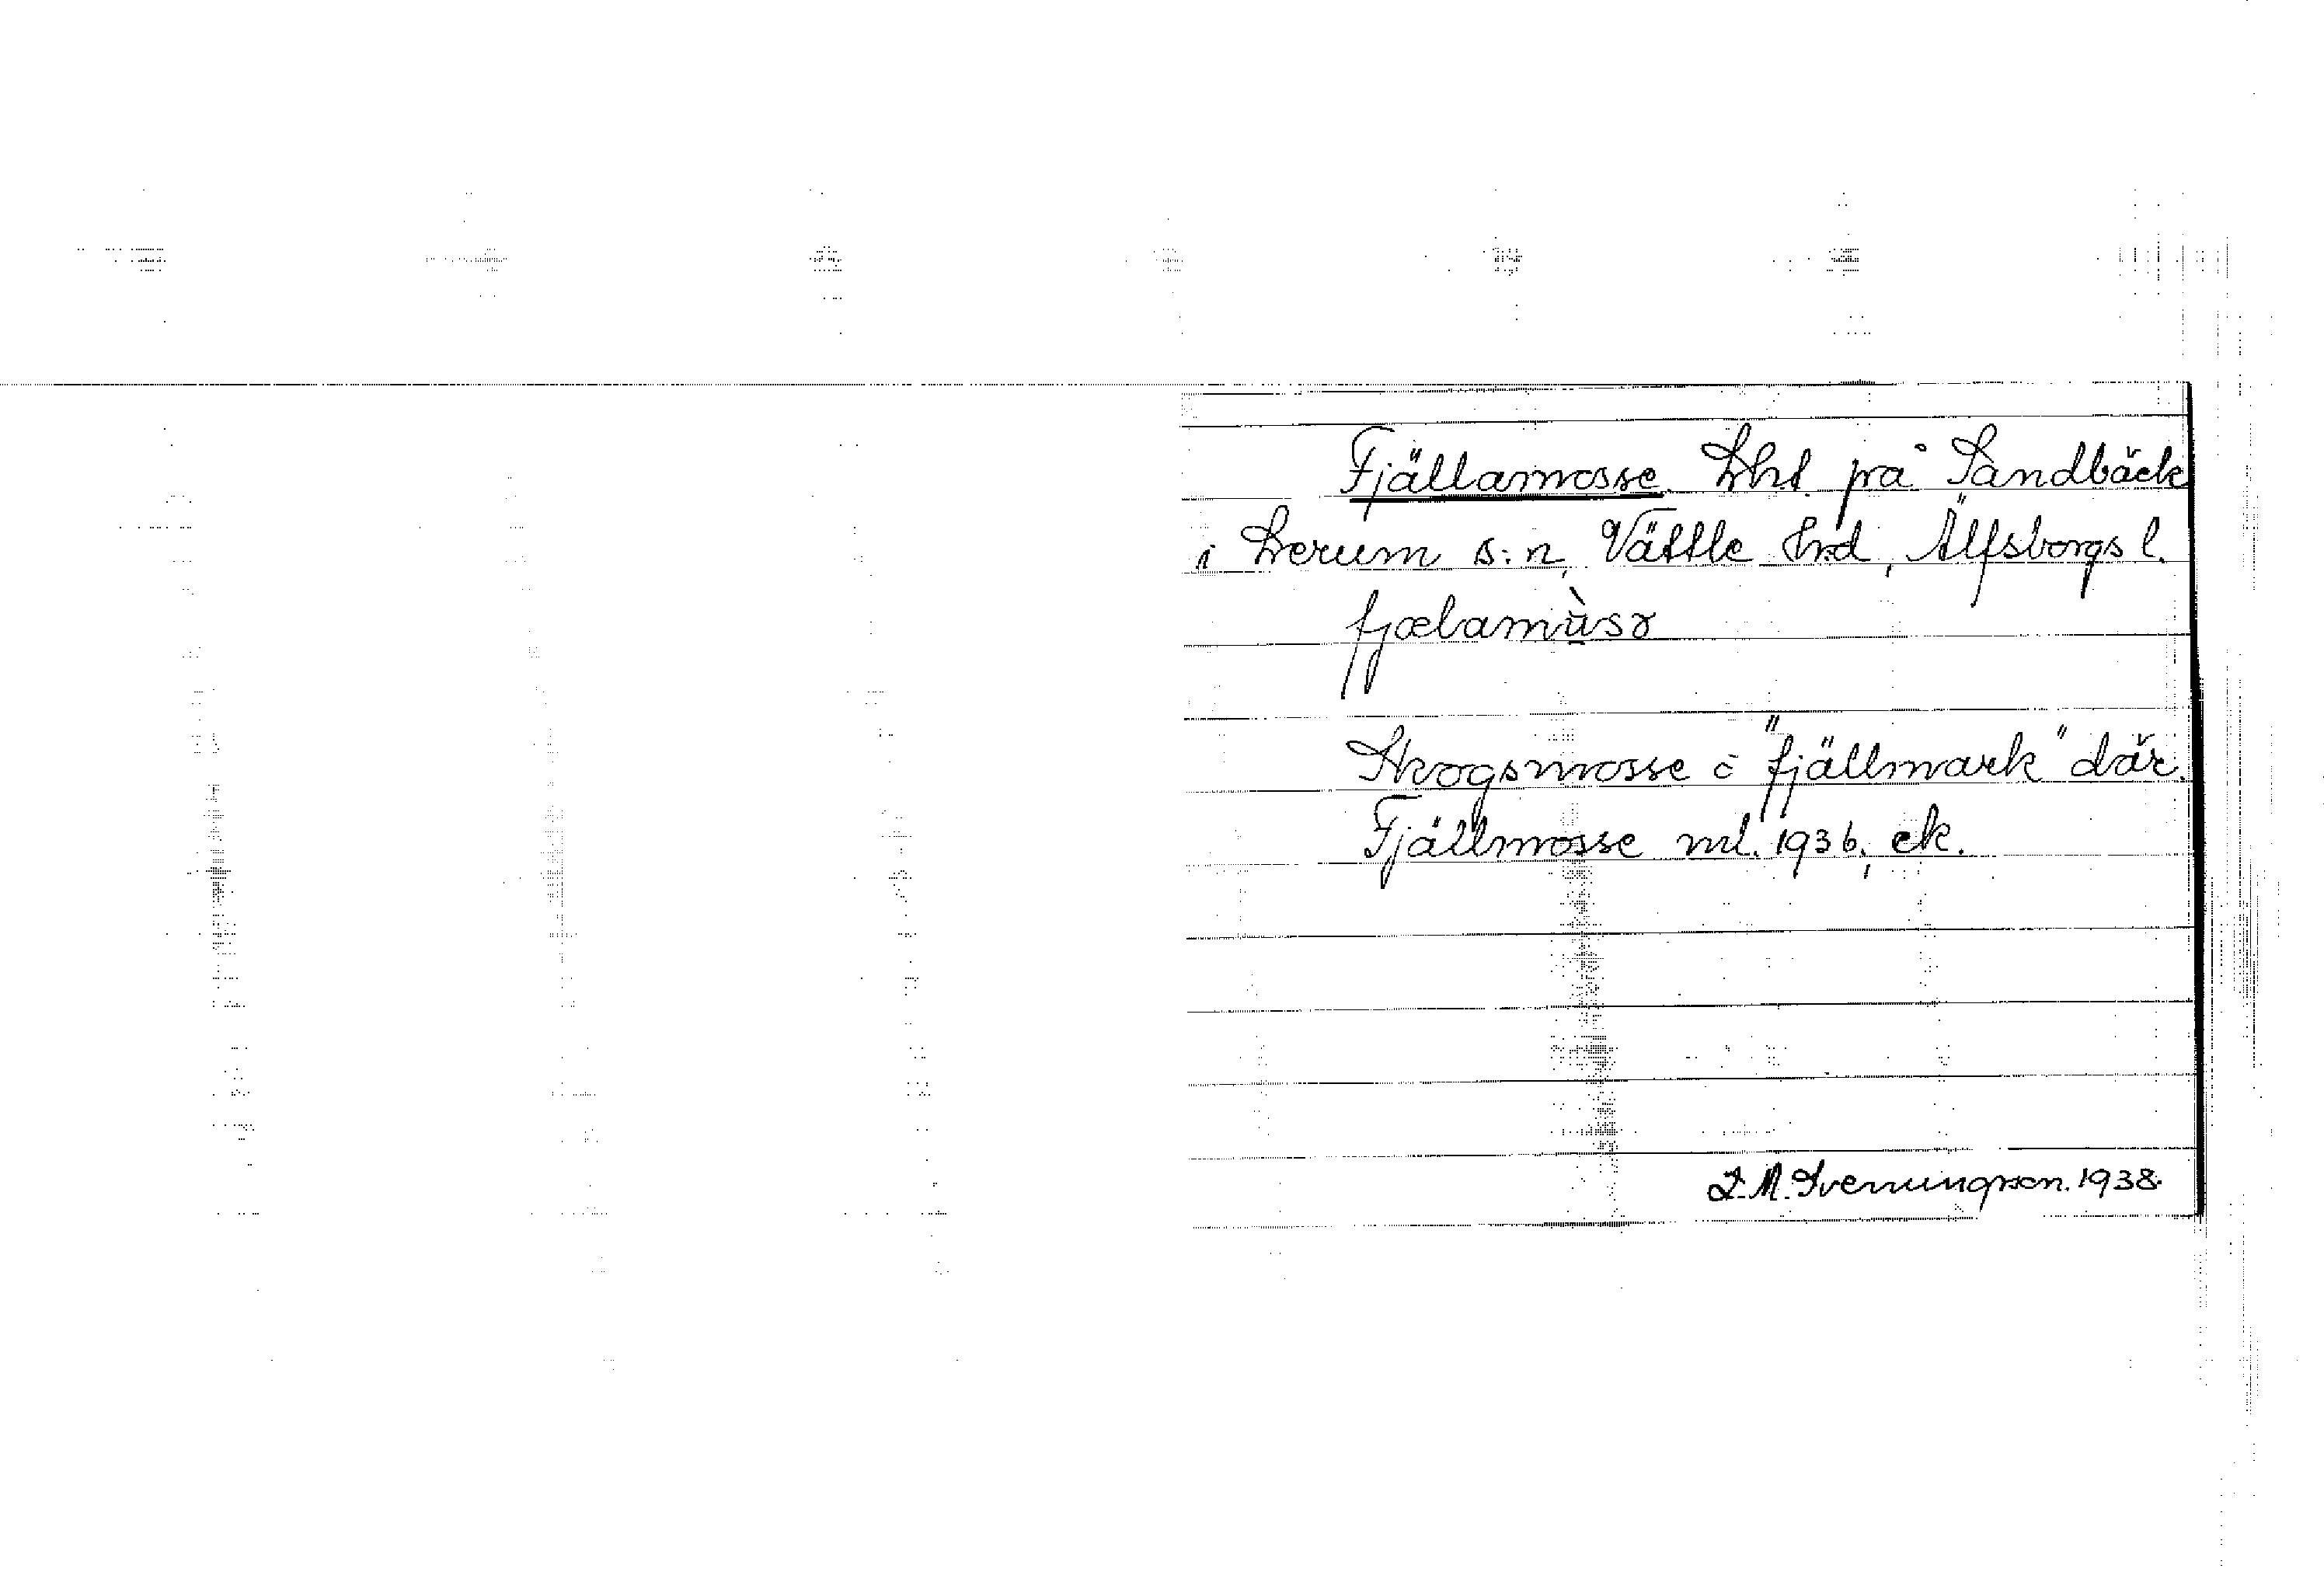 Fjällamosse. Lht på Sandbäck
i Lerum s:n, Vättle hrd, Älfsborgs l.
fjœlamùsɤ
Skogsmosse i "fjällmark" där.
Fjällmosse ml. 1936, ek.
J. M. Svenungsson. 1938.